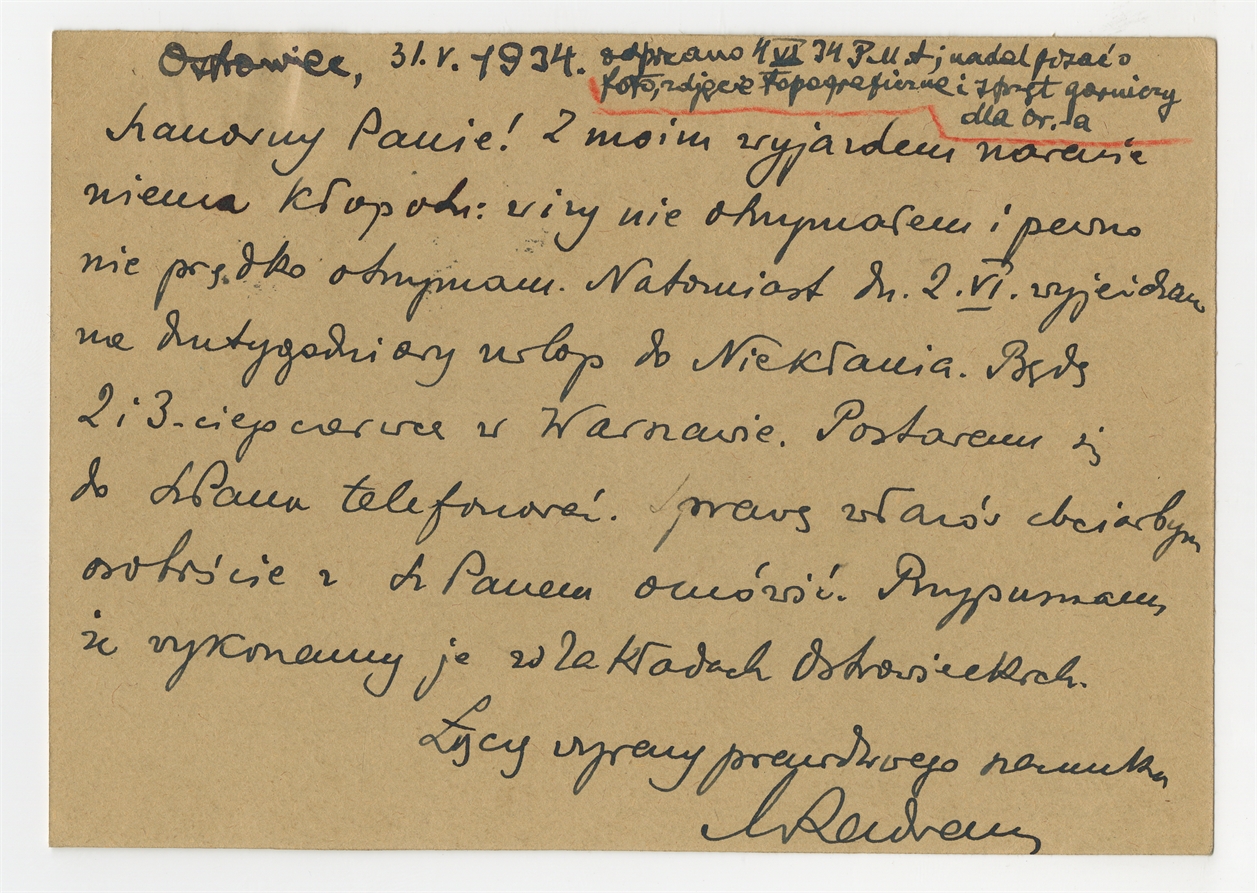 Ostrowiec, 31.V.1934. odpisano 4 VI 34 P.M.A; nadal pisać o
foto, zdjęcie topograficzne i sprzęt górniczy
dla Or.
Szanowny Panie! Z moim wyjazdem narazie
niema kłopotu: wizy nie otrzymałem i pewno
nie prędko otrzymam. Natomiast dn. 2.VI. wyjeżdżam
na dwutygodniowy urlop do Niekłania. Będę
2 i 3-ciego czerwca w Warszawie. Postaram się
do Sz Pana telefonować. Sprawę włazów chciałbym
osobiście z Sz Panem omówić. Przypuszczam,
że wykonamy je w Zakładach Ostrowieckich.
Łączę wyrazy prawdziwego szacunku